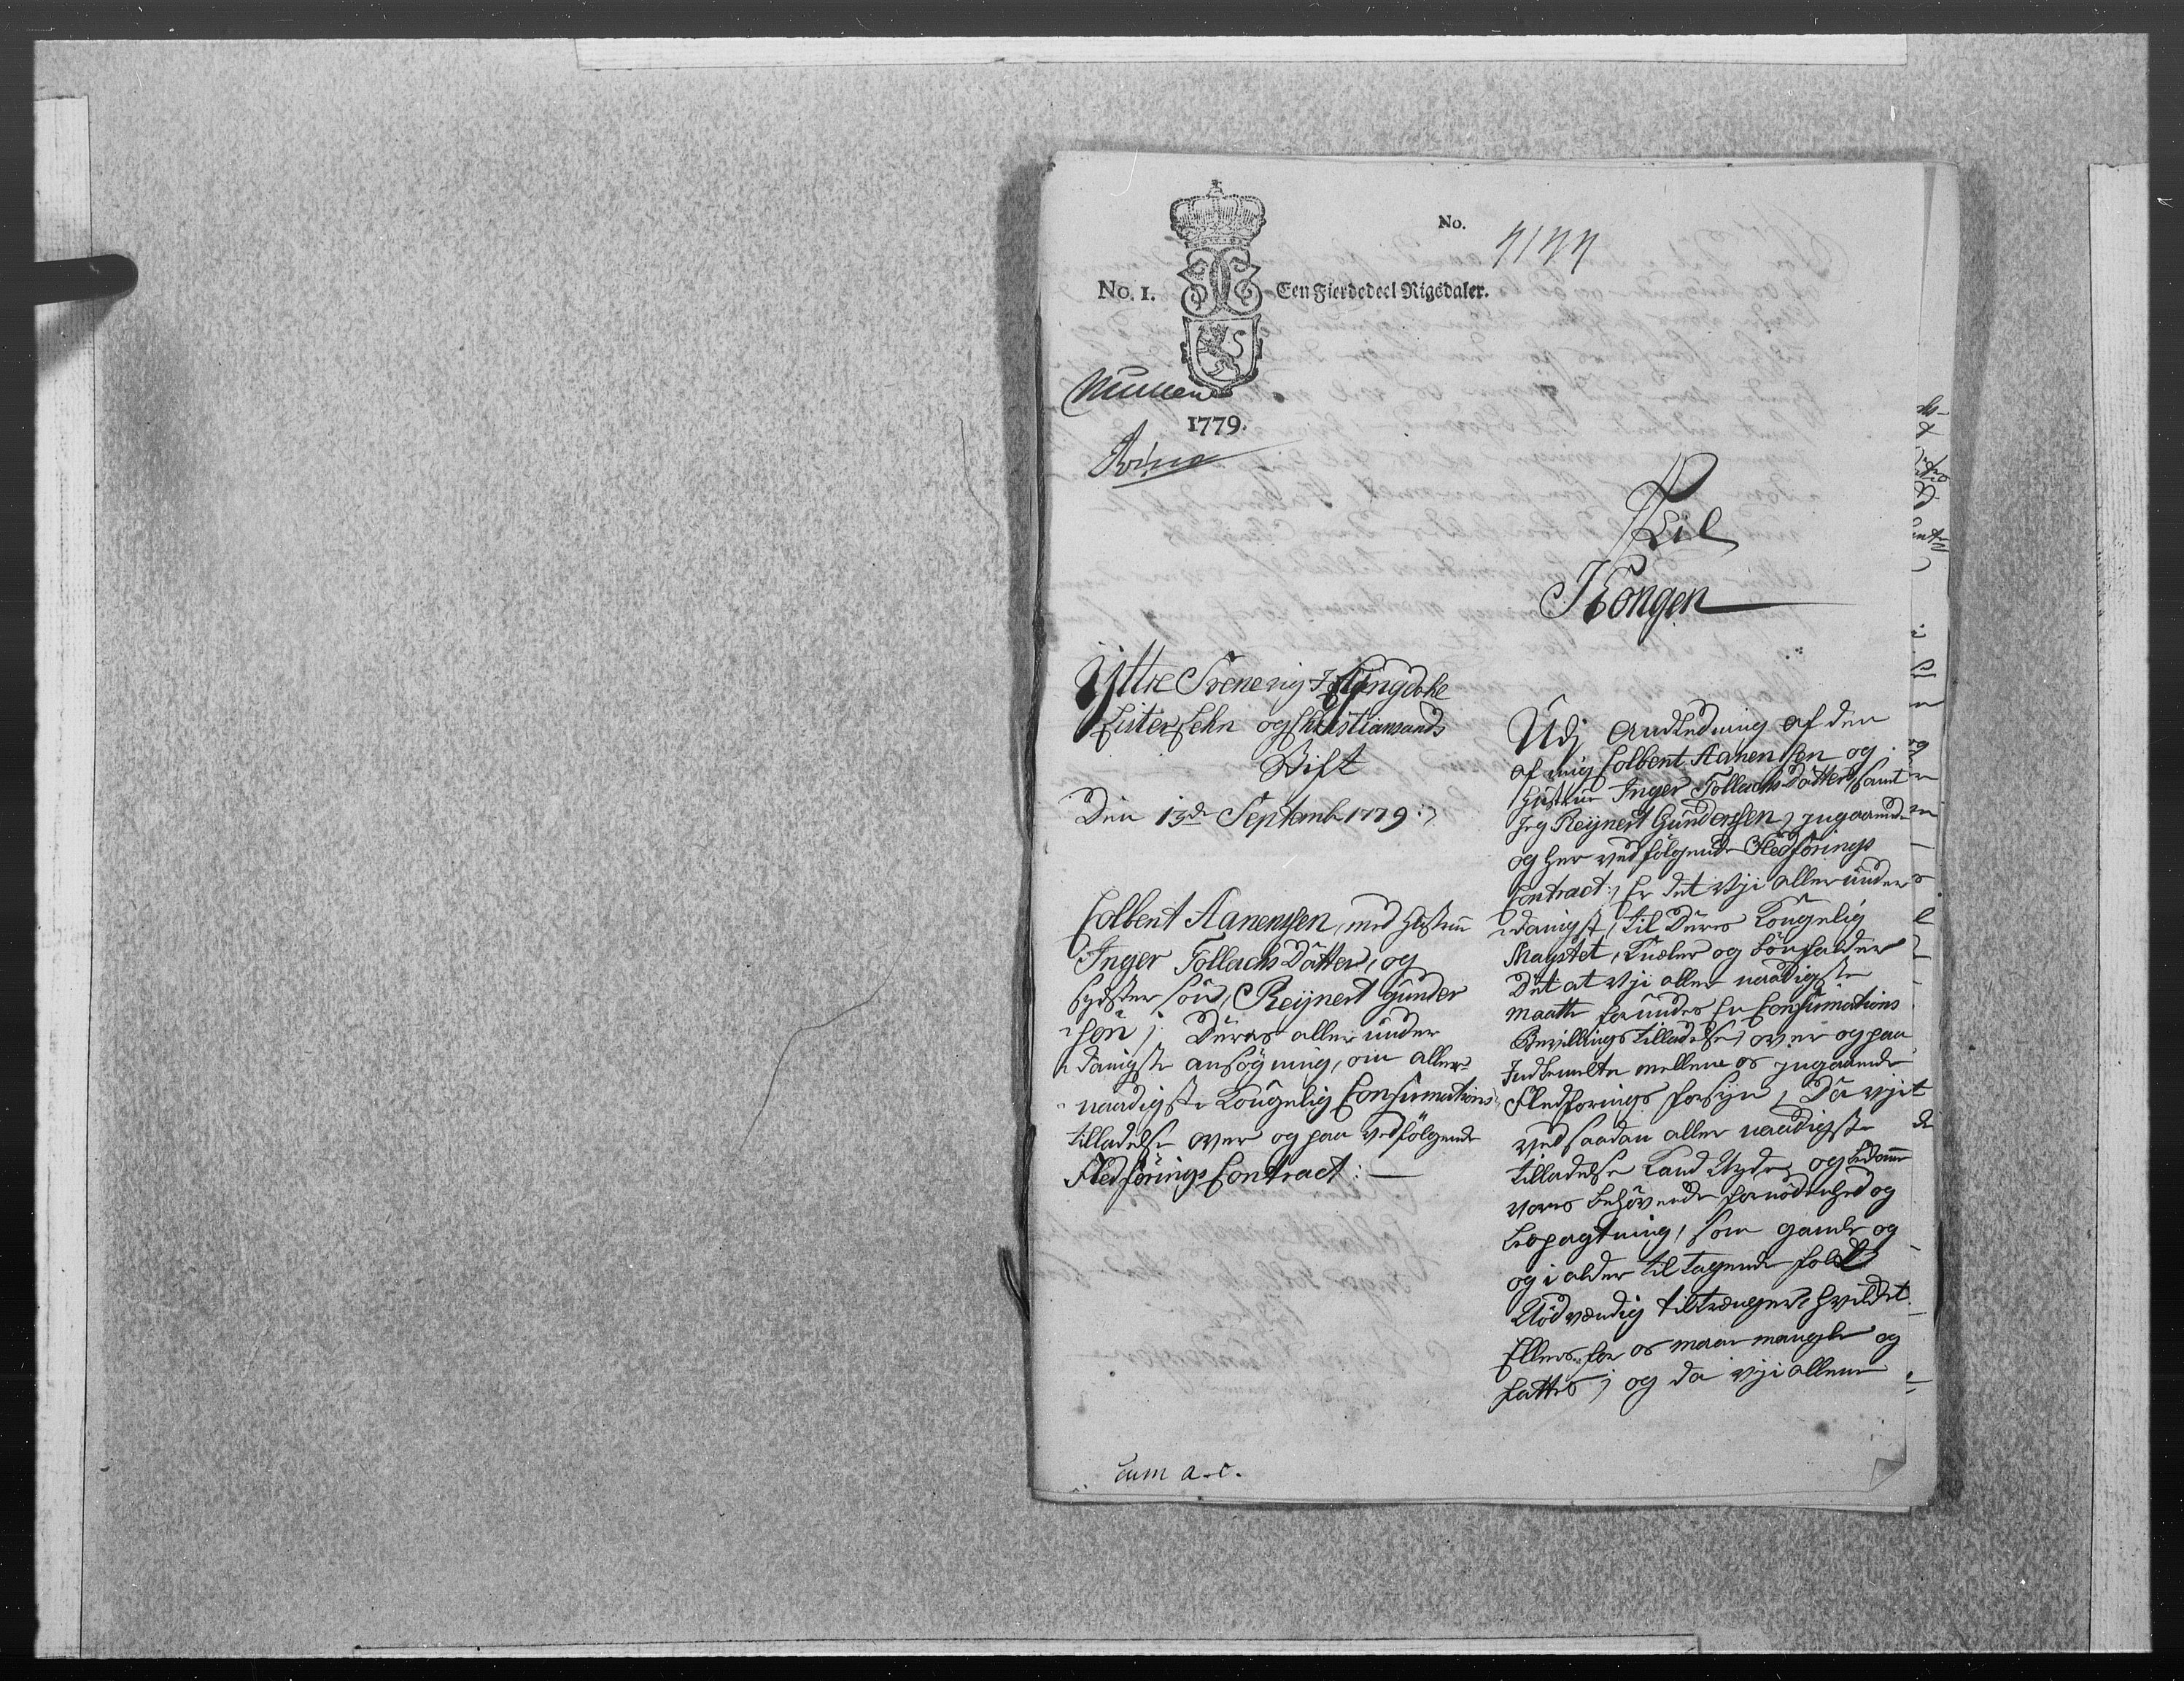 No. 4144
No. 1. Een Fierdedeel Rigsdaler.
1779.
Til
Kongen
Yttre Svenevig I Hitterdahl
Lister Lehn og Christiansands
Stift
Den 13de Septembr 1779:
Colbent Aanenssen, med Hustrue
Inger Tollachs Datter, og
Søster Søn, Reijnert Gunder
-sen ; Deres aller under
-danigste ansøgning, om aller-
-naadigste Kongelig Confirmations
tilladelse over og paa vedfølgende
Fledførings Contract: —
cum a-c.
Udj Andledning af den
af mig Colbent Aanenssen og
Hustrue Inger Tollachs Datter, samt
Jeg Reijnert Gunderssen, jngaaende
og her ved følgende Fledførings
Contract; Er det vji aller under
-danigst, til Deres Kongelig
Mayestet, Knæler og bønfalder
Det at vji aller naadigste
maatte forundes En Confirmations
Bevillings tilladelse, over og paa
Indbemelte mellem os jngaaende
Fledførings forsyn, Da vji
ved saadan aller naadigste
tilladelse Kand Nyde og bekomme
vores behøvende fornødenhed og
Leopagtning, som gamle og
og i alder til tagende folck
Nødvendig tiltrænger, hvilcket
Ellers for os maae mangle og
fattes ; og da vji allene